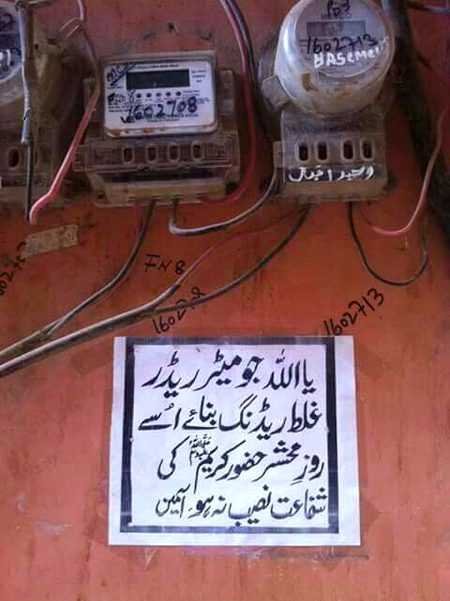 1602713
BASEMENT
1602708
وحید اقبال
FN8
1602713
یا اللہ جو میٹر ریڈر
غلط ریڈنگ بنائے اُسے
روزِ محشر حضور کریم ﷺ کی
شفاعت نصیب نہ ہو، آمین